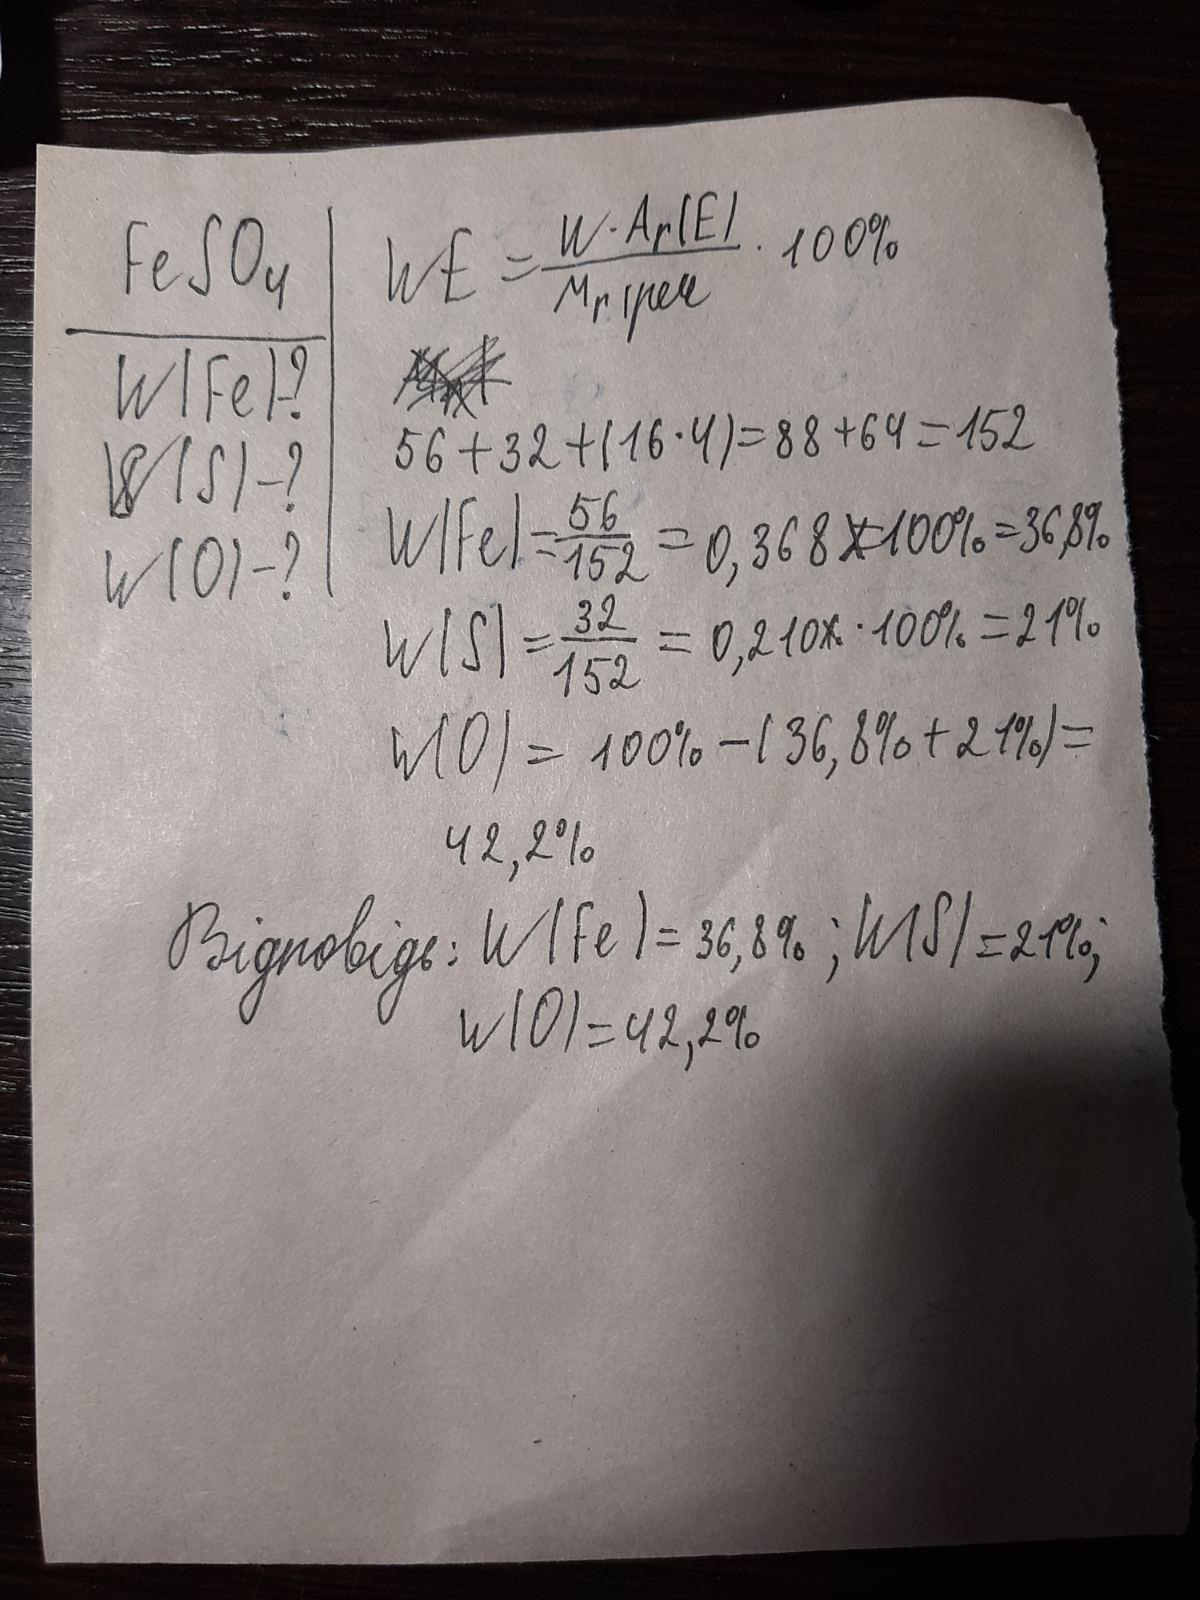 FeSO4
W(Fe)-?
W(S)-?
W(O)-?
WE = W·Ar(E) / Mr(реч · 100%
56+32+(16·4)=88+64=152
W(Fe)=56/152 = 0,368 · 100%=36,8%
W(S)=32/152 = 0,210 · 100%=21%
W(O) = 100% -(36,8%+21%)=
42,2%
Відповідь: W(Fe)=36,8%; W(S)=21%;
W(O)=42,2%